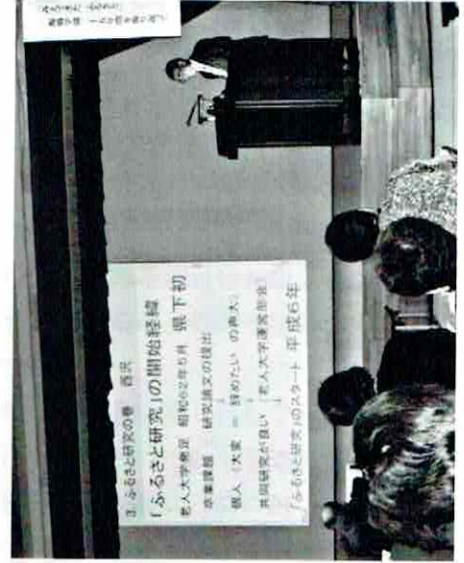 3. ふるさと研究の巻 西沢
「ふるさと研究」の開始経緯
老人大学発足 昭和62年5月 県下初
卒業課題 研究論文の提出
個人 (大変 = 辞めたい の声大)
↓
共同研究が良い (老人大学運営部会)
↓
「ふるさと研究」のスタート 平成6年